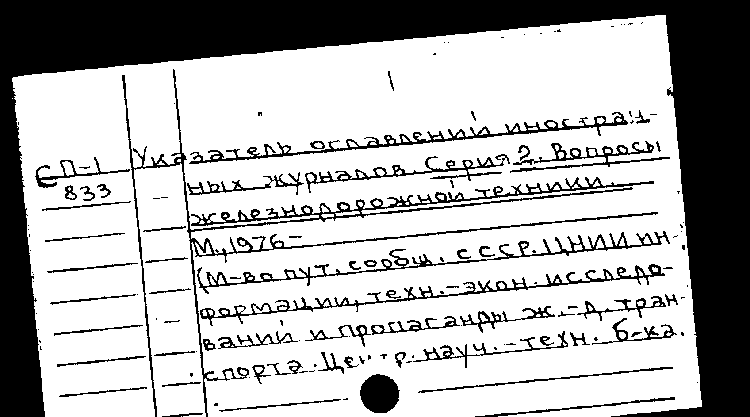 СП-1
833
Указатель оглавлений иностран-
ных журналов. Серия 2. Вопросы
железнодорожной техники.
М., 1976-
(М-во пут. сообщ. СССР. ЦНИИ ин-
формации, техн.-экон. исследо-
ваний и пропаганды ж.-д. тран-
спорта. Центр. науч.-техн. б-ка.